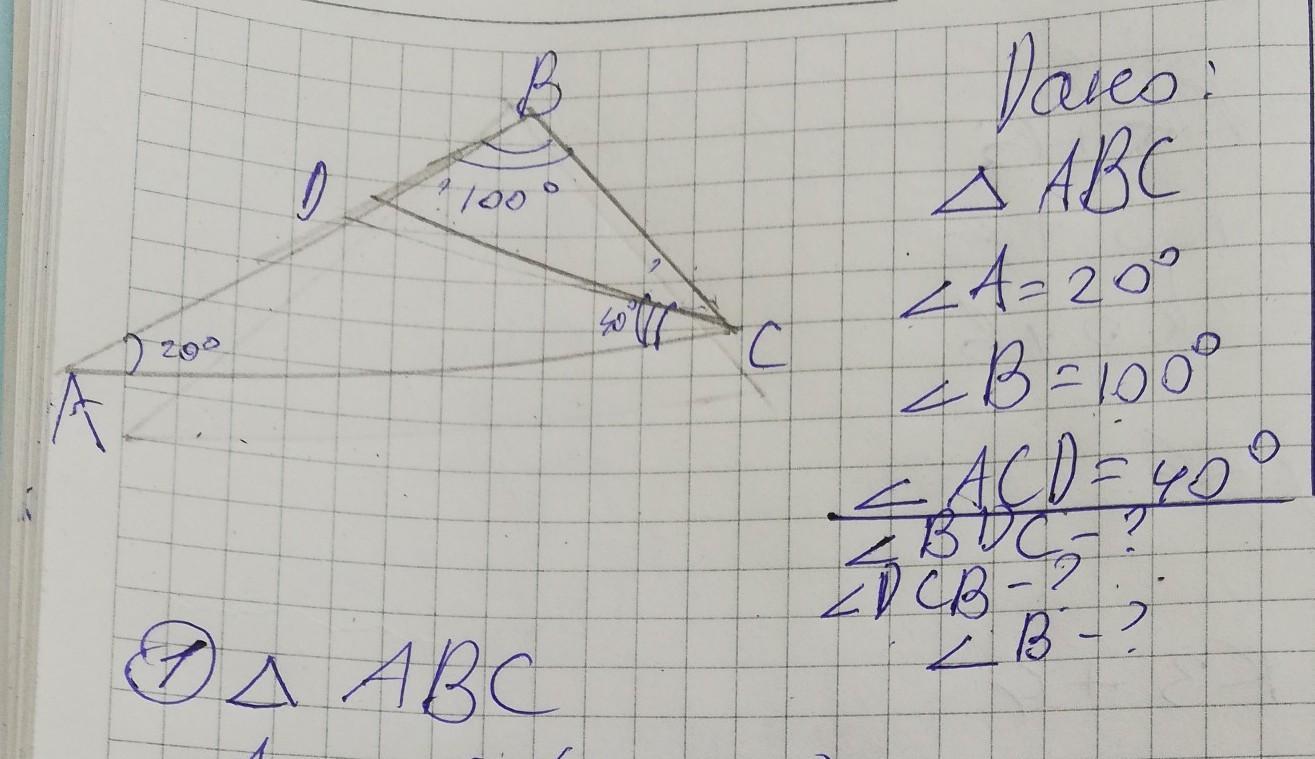 B
D
? 100°
?
40°
C
20°
A
Дано:
△ ABC
∠A = 20°
∠B = 100°
∠ACD = 40°
∠BDC - ?
∠DCB - ?
∠B - ?
① △ ABC